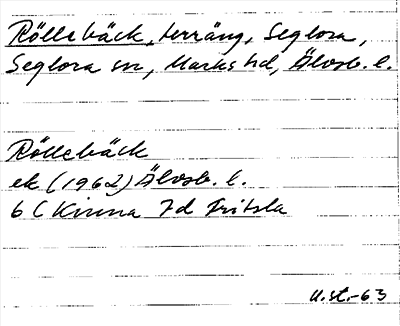 Röllebäck, terräng, Seglora,
Seglora sn, Marks hd, Älvsb. l.
Röllebäck
ek (1962) Älvsb. l.
6 C Kinna 7d Fritsla
U.st.-63